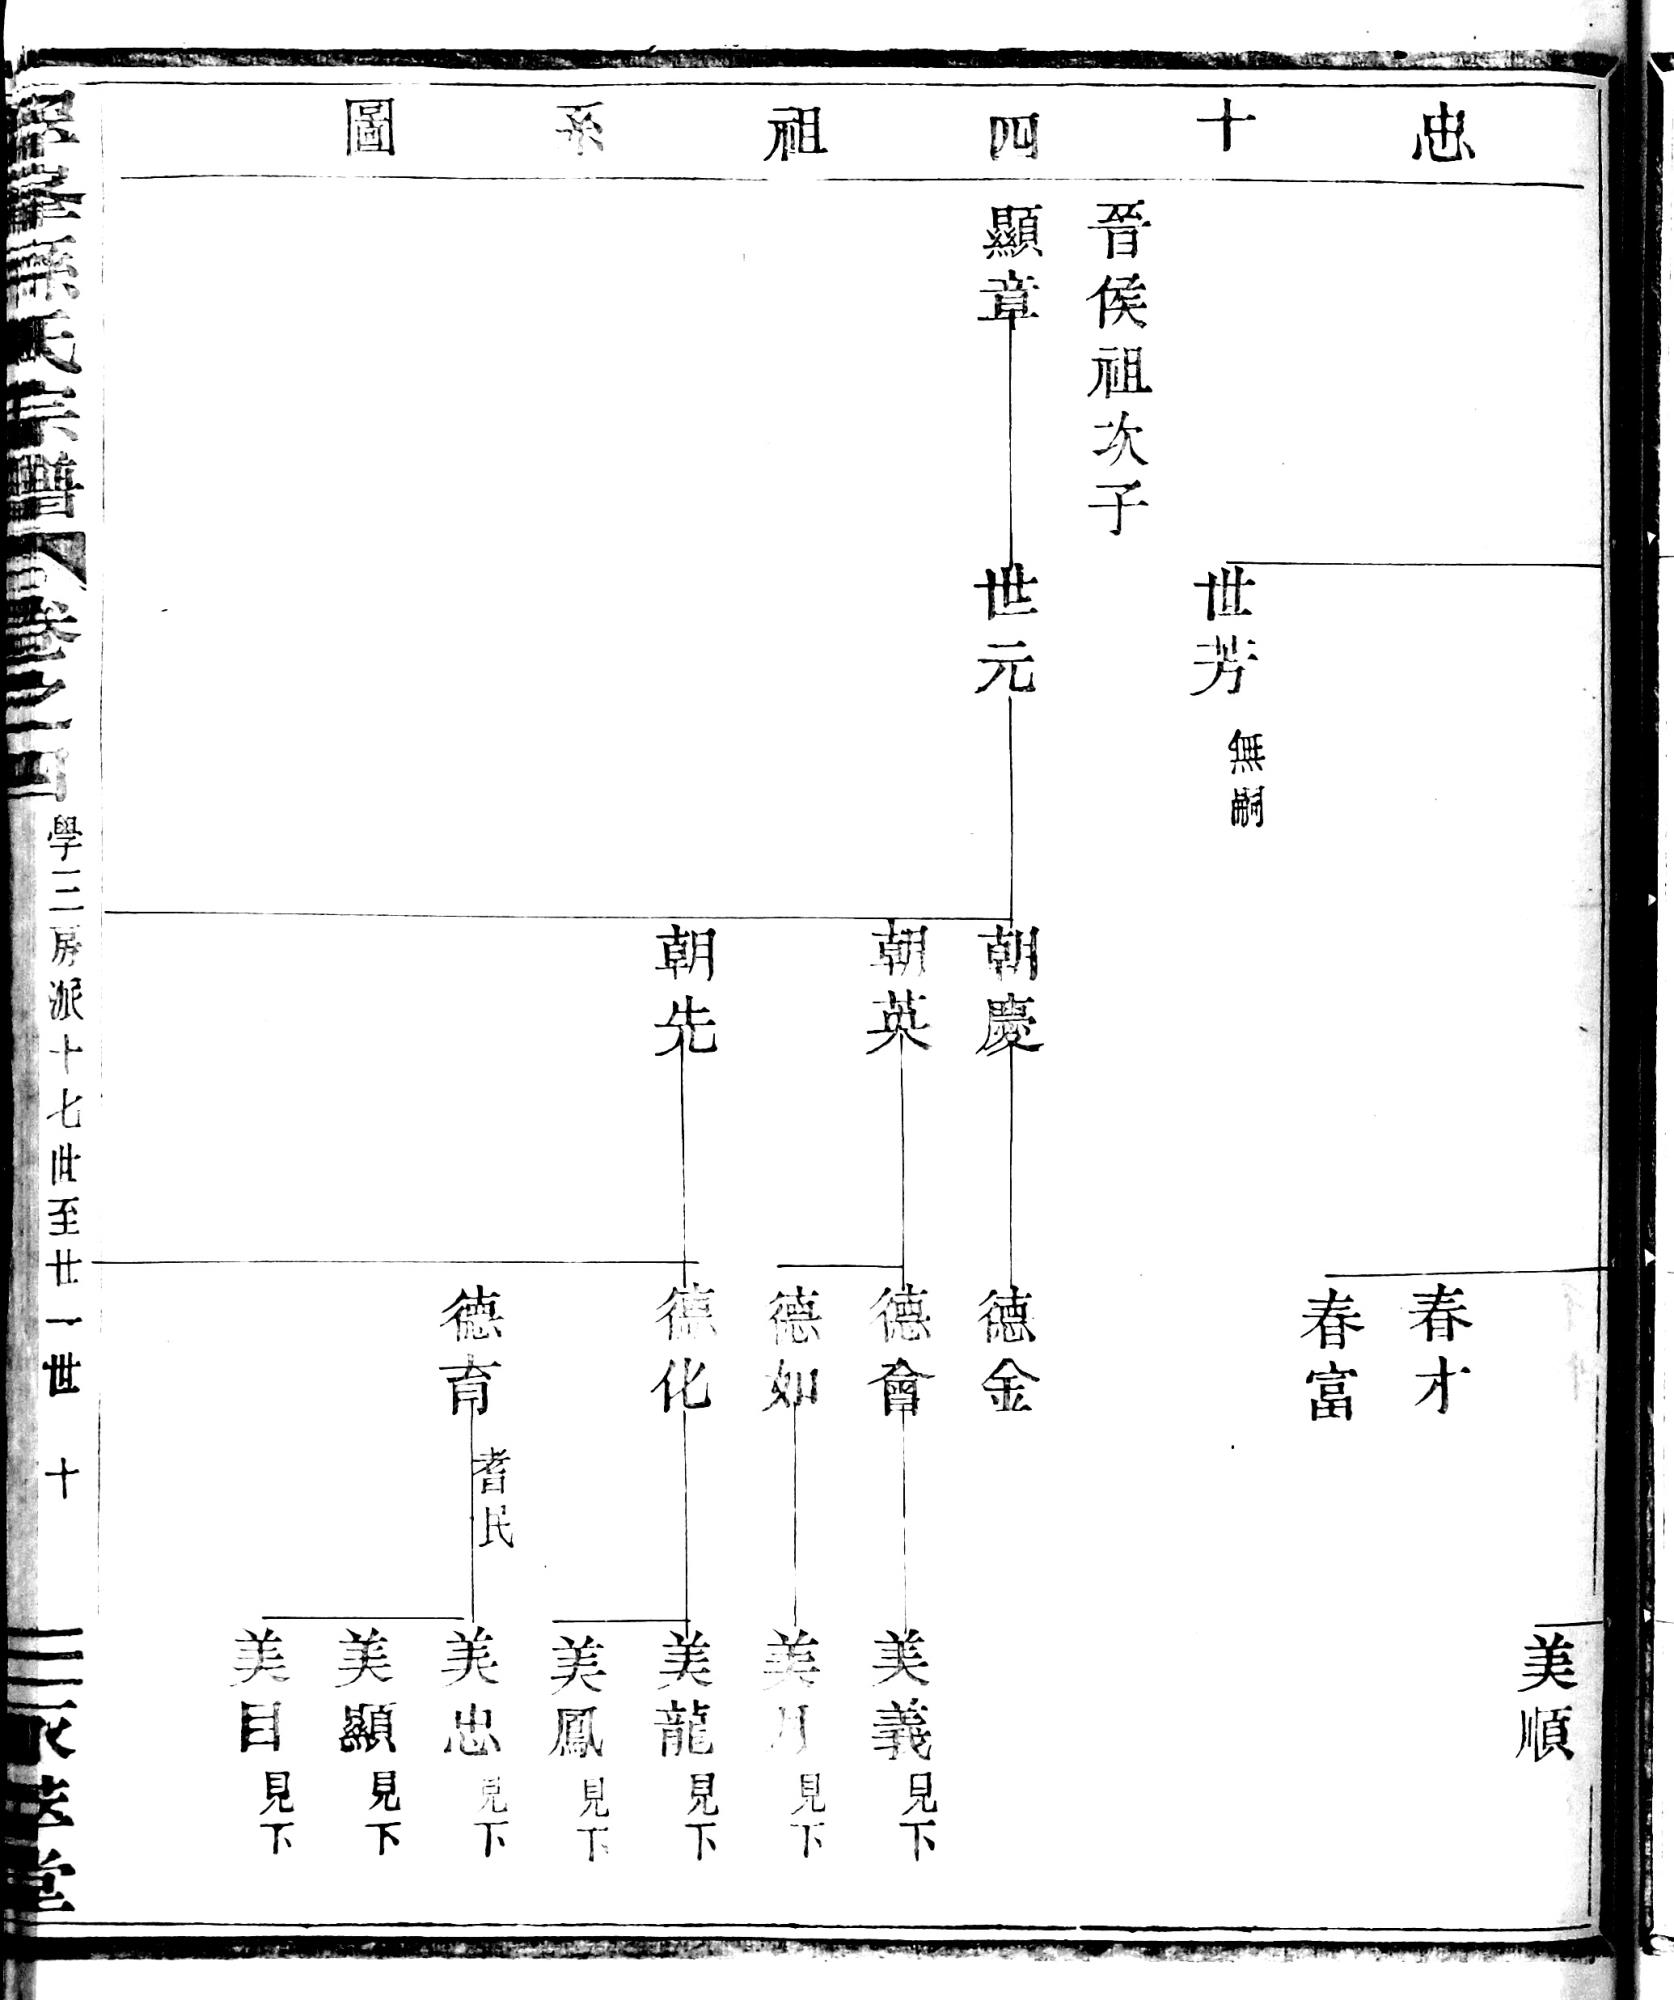 忠十四祖系圖
美順
春才
春富
世芳 無嗣
晉侯祖次子
顯章
世元
朝慶
德金
朝英
德會
美義 見下
德如
美月 見下
朝先
德化
美龍 見下
美鳳 見下
德育 耆民
美忠 見下
美顯 見下
美目 見下
孫氏宗譜 卷之四
學三房派十七世至廿一世 十
堂